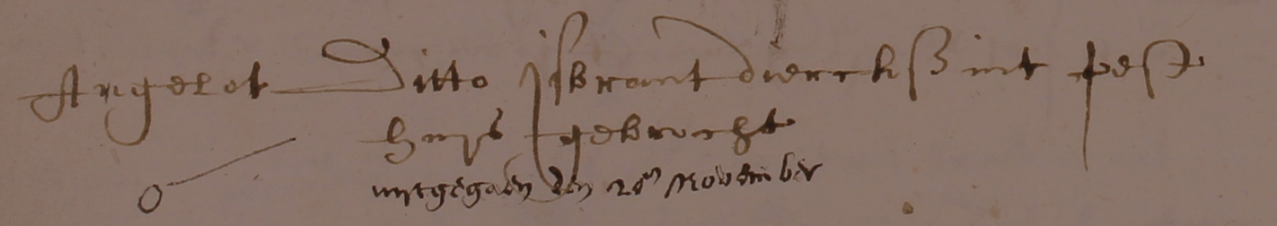 Angelot Ditto Isbrant dierckß int pest
huys gebrocht
uytgegaen den 28en November